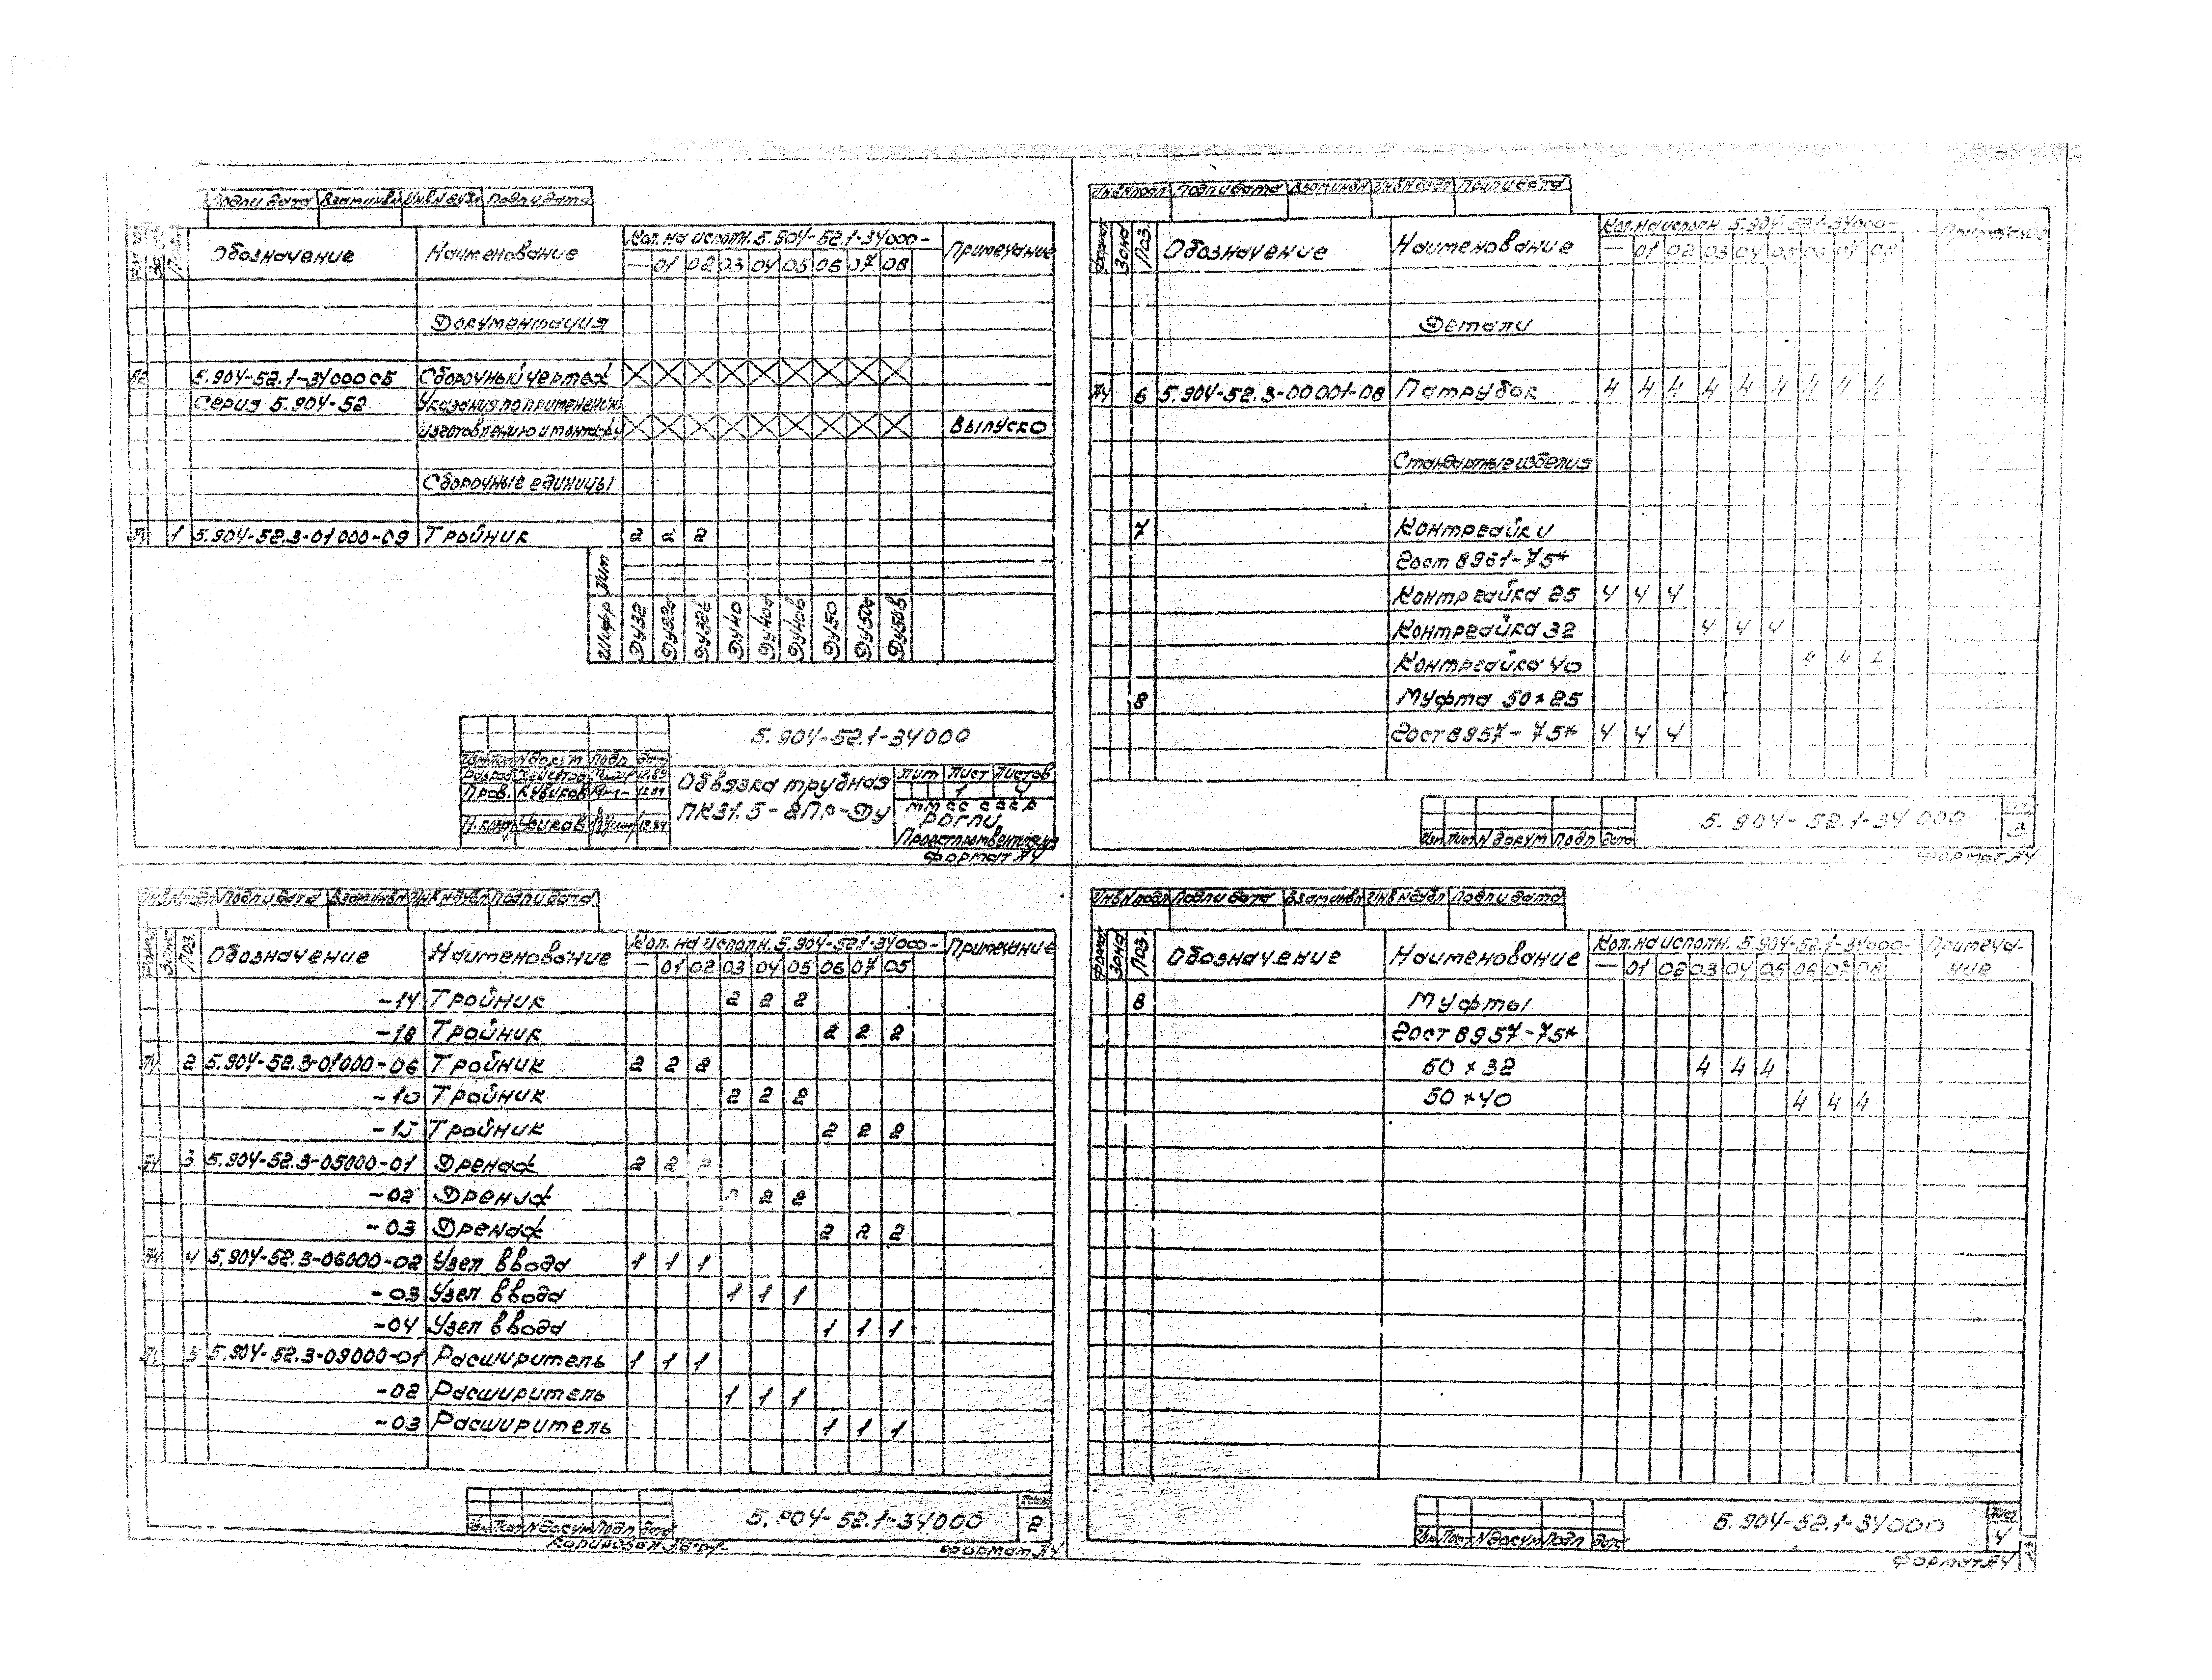 Подп и дата Взам инв N Инв N дубл Подп и дата
Поз. Обозначение Наименование Кол. на исполн. 5.904-52.1-34000- Примечание
— 01 02 03 04 05 06 07 08
Документация
А2 5.904-52.1-34000СБ Сборочный чертеж
Серия 5.904-52 Указания по применению
изготовлению и монтажу Выпуск 0
Сборочные единицы
А4 1 5.904-52.3-01000-09 Тройник 2 2 2
Лит
Шифр Ду32 Ду32а Ду32в Ду40 Ду40а Ду40в Ду50 Ду50а Ду50в
5.904-52.1-34000
Изм Лист N докум. Подп Дат
Разраб 12.89
Пров. Кубиков 12.89
Н.контр 12.89
Обвязка трубная
ПК31.5-2П.р-Ду
Лит Лист Листов
1 4
ММСС СССР
Проектпромвентиляция
Формат А4
Инв N подл Подп и дата Взам инв N Инв N дубл Подп и дата
Формат Зона Поз. Обозначение Наименование Кол. на исполн. 5.904-52.1-34000- Примечание
— 01 02 03 04 05 06 07 08
Детали
А4 6 5.904-52.3-00001-08 Патрубок 4 4 4 4 4 4 4 4 4
Стандартные изделия
7 Контргайки
Гост 8961-75*
Контргайка 25 4 4 4
Контргайка 32 4 4 4
Контргайка 40 4 4 4
8 Муфта 50×25
Гост 8957-75* 4 4 4
5.904-52.1-34000
3
Изм Лист N докум Подп Дата
Формат А4
Инв N подл Подп и дата Взам инв N Инв N дубл Подп и дата
Формат Зона Поз. Обозначение Наименование Кол. на исполн. 5.904-52.1-34000- Примечание
— 01 02 03 04 05 06 07 05
-14 Тройник 2 2 2
-18 Тройник 2 2 2
А4 2 5.904-52.3-01000-06 Тройник 2 2 2
-10 Тройник 2 2 2
-15 Тройник 2 2 2
А4 3 5.904-52.3-05000-01 Дренаж 2 2 2
-02 Дренаж 2 2 2
-03 Дренаж 2 2 2
А4 4 5.904-52.3-06000-02 Узел ввода 1 1 1
-03 Узел ввода 1 1 1
-04 Узел ввода 1 1 1
А4 5 5.904-52.3-09000-01 Расширитель 1 1 1
-02 Расширитель 1 1 1
-03 Расширитель 1 1 1
5.904-52.1-34000
Лист
2
Изм Лист N докум Подп. Дата
Копировал
Формат А4
Инв N подл Подп и дата Взам инв N Инв N дубл Подп и дата
Формат Зона Поз. Обозначение Наименование Кол. на исполн. 5.904-52.1-34000- Примеча-
ние
— 01 02 03 04 05 06 07 08
8 Муфты
Гост 8957-75*
50 × 32 4 4 4
50 ×40 4 4 4
5.904-52.1-34000
Лист
4
Изм Лист N докум Подп Дата
Формат А4